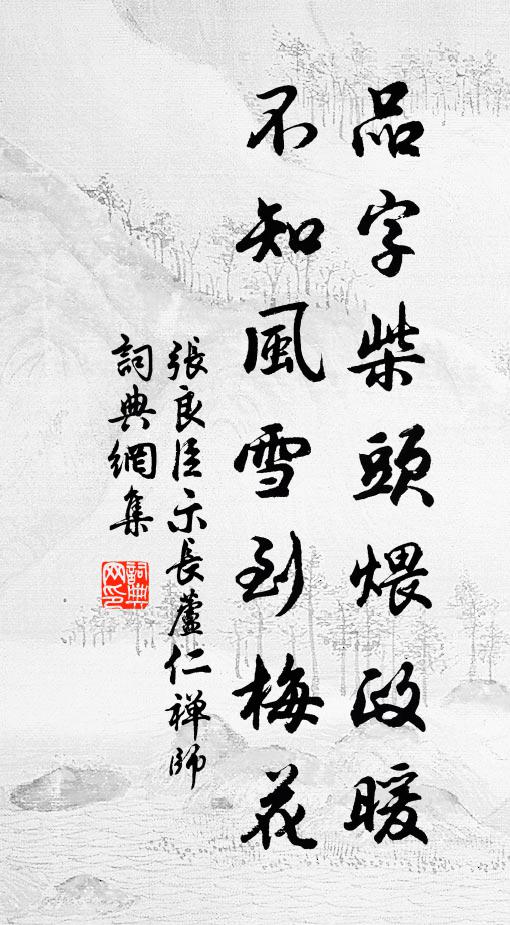 品字柴頭煨政暖
不知風雪到梅花
張良臣示長蘆仁禪師
詞典網集
詞典网印